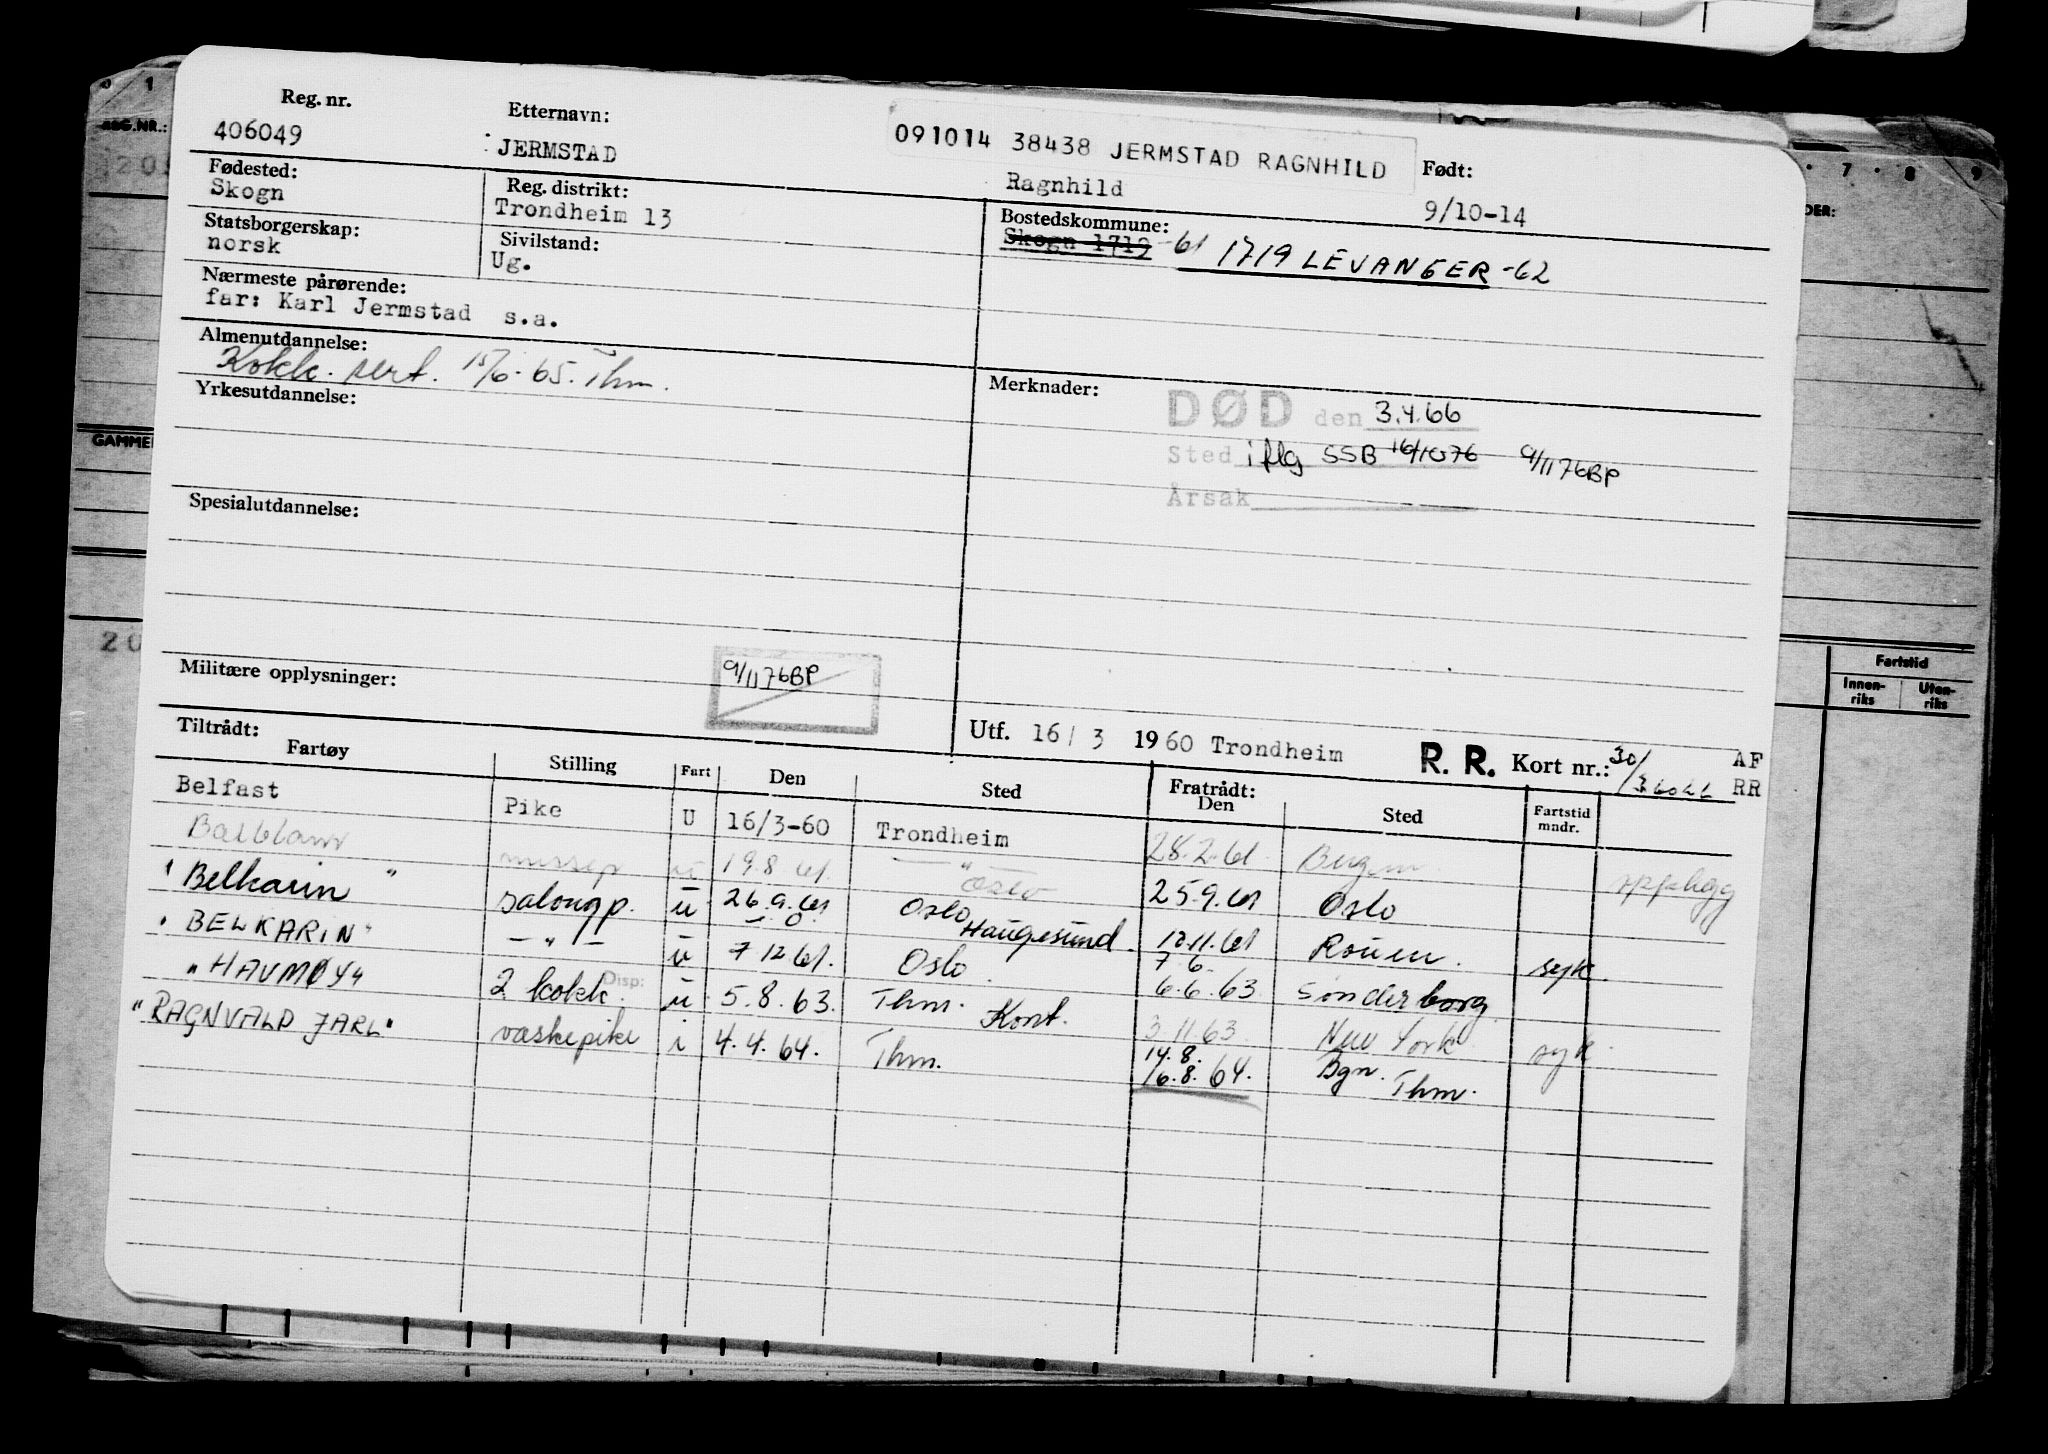 Reg. nr. Etternavn:
406049 JERMSTAD 091014 38438 JERMSTAD RAGNHILD Født:
Ragnhild 9/10-14
Fødested: Reg. distrikt: Bostedskommune:
Skogn Trondheim 13 Skogn 1719 -61 1719 LEVANGER -62
Statsborgerskap: Sivilstand:
norsk Ug.
Nærmeste pårørende:
far: Karl Jermstad s.a.
Almenutdannelse:
Kokk. sert. 15/6-65. Thm.
Yrkesutdannelse:
Merknader:
DØD den 3.4.66
Sted iflg SSB 16/10 76 9/11 76 BP
Årsak
Spesialutdannelse:
Militære opplysninger: 9/11 76 BP
Utf. 16/3 1960 Trondheim R. R. Kort nr.: 30/ AF
RR
Tiltrådt:
Fartøy Stilling Fart Den Sted Fratrådt: Den Sted Fartstid mndr.
Belfast Pike U 16/3-60 Trondheim 28.2.61 Bergen opplegg
messep u 19.8.61. Oslo 25.9.61 Oslo
"Belkarin" salongp. u 26.9.61 Oslo Haugesund 12.11.61 Rouen. syk.
"BELKARIN" — " — u 7 12 61. Oslo. 7 6. 6.6.63 Sønderborg
"HAVMØY" 2 kokk. Disp: u 5.8.63. Thm. Kont. 3.11.63. New York syk.
"RAGNVALD JARL" vaskepike i 4.4.64. Thm. 14.8. 16.8.64. Bgn. Thm.
GAMME
Fartstid
Innen-
riks
Uten-
riks